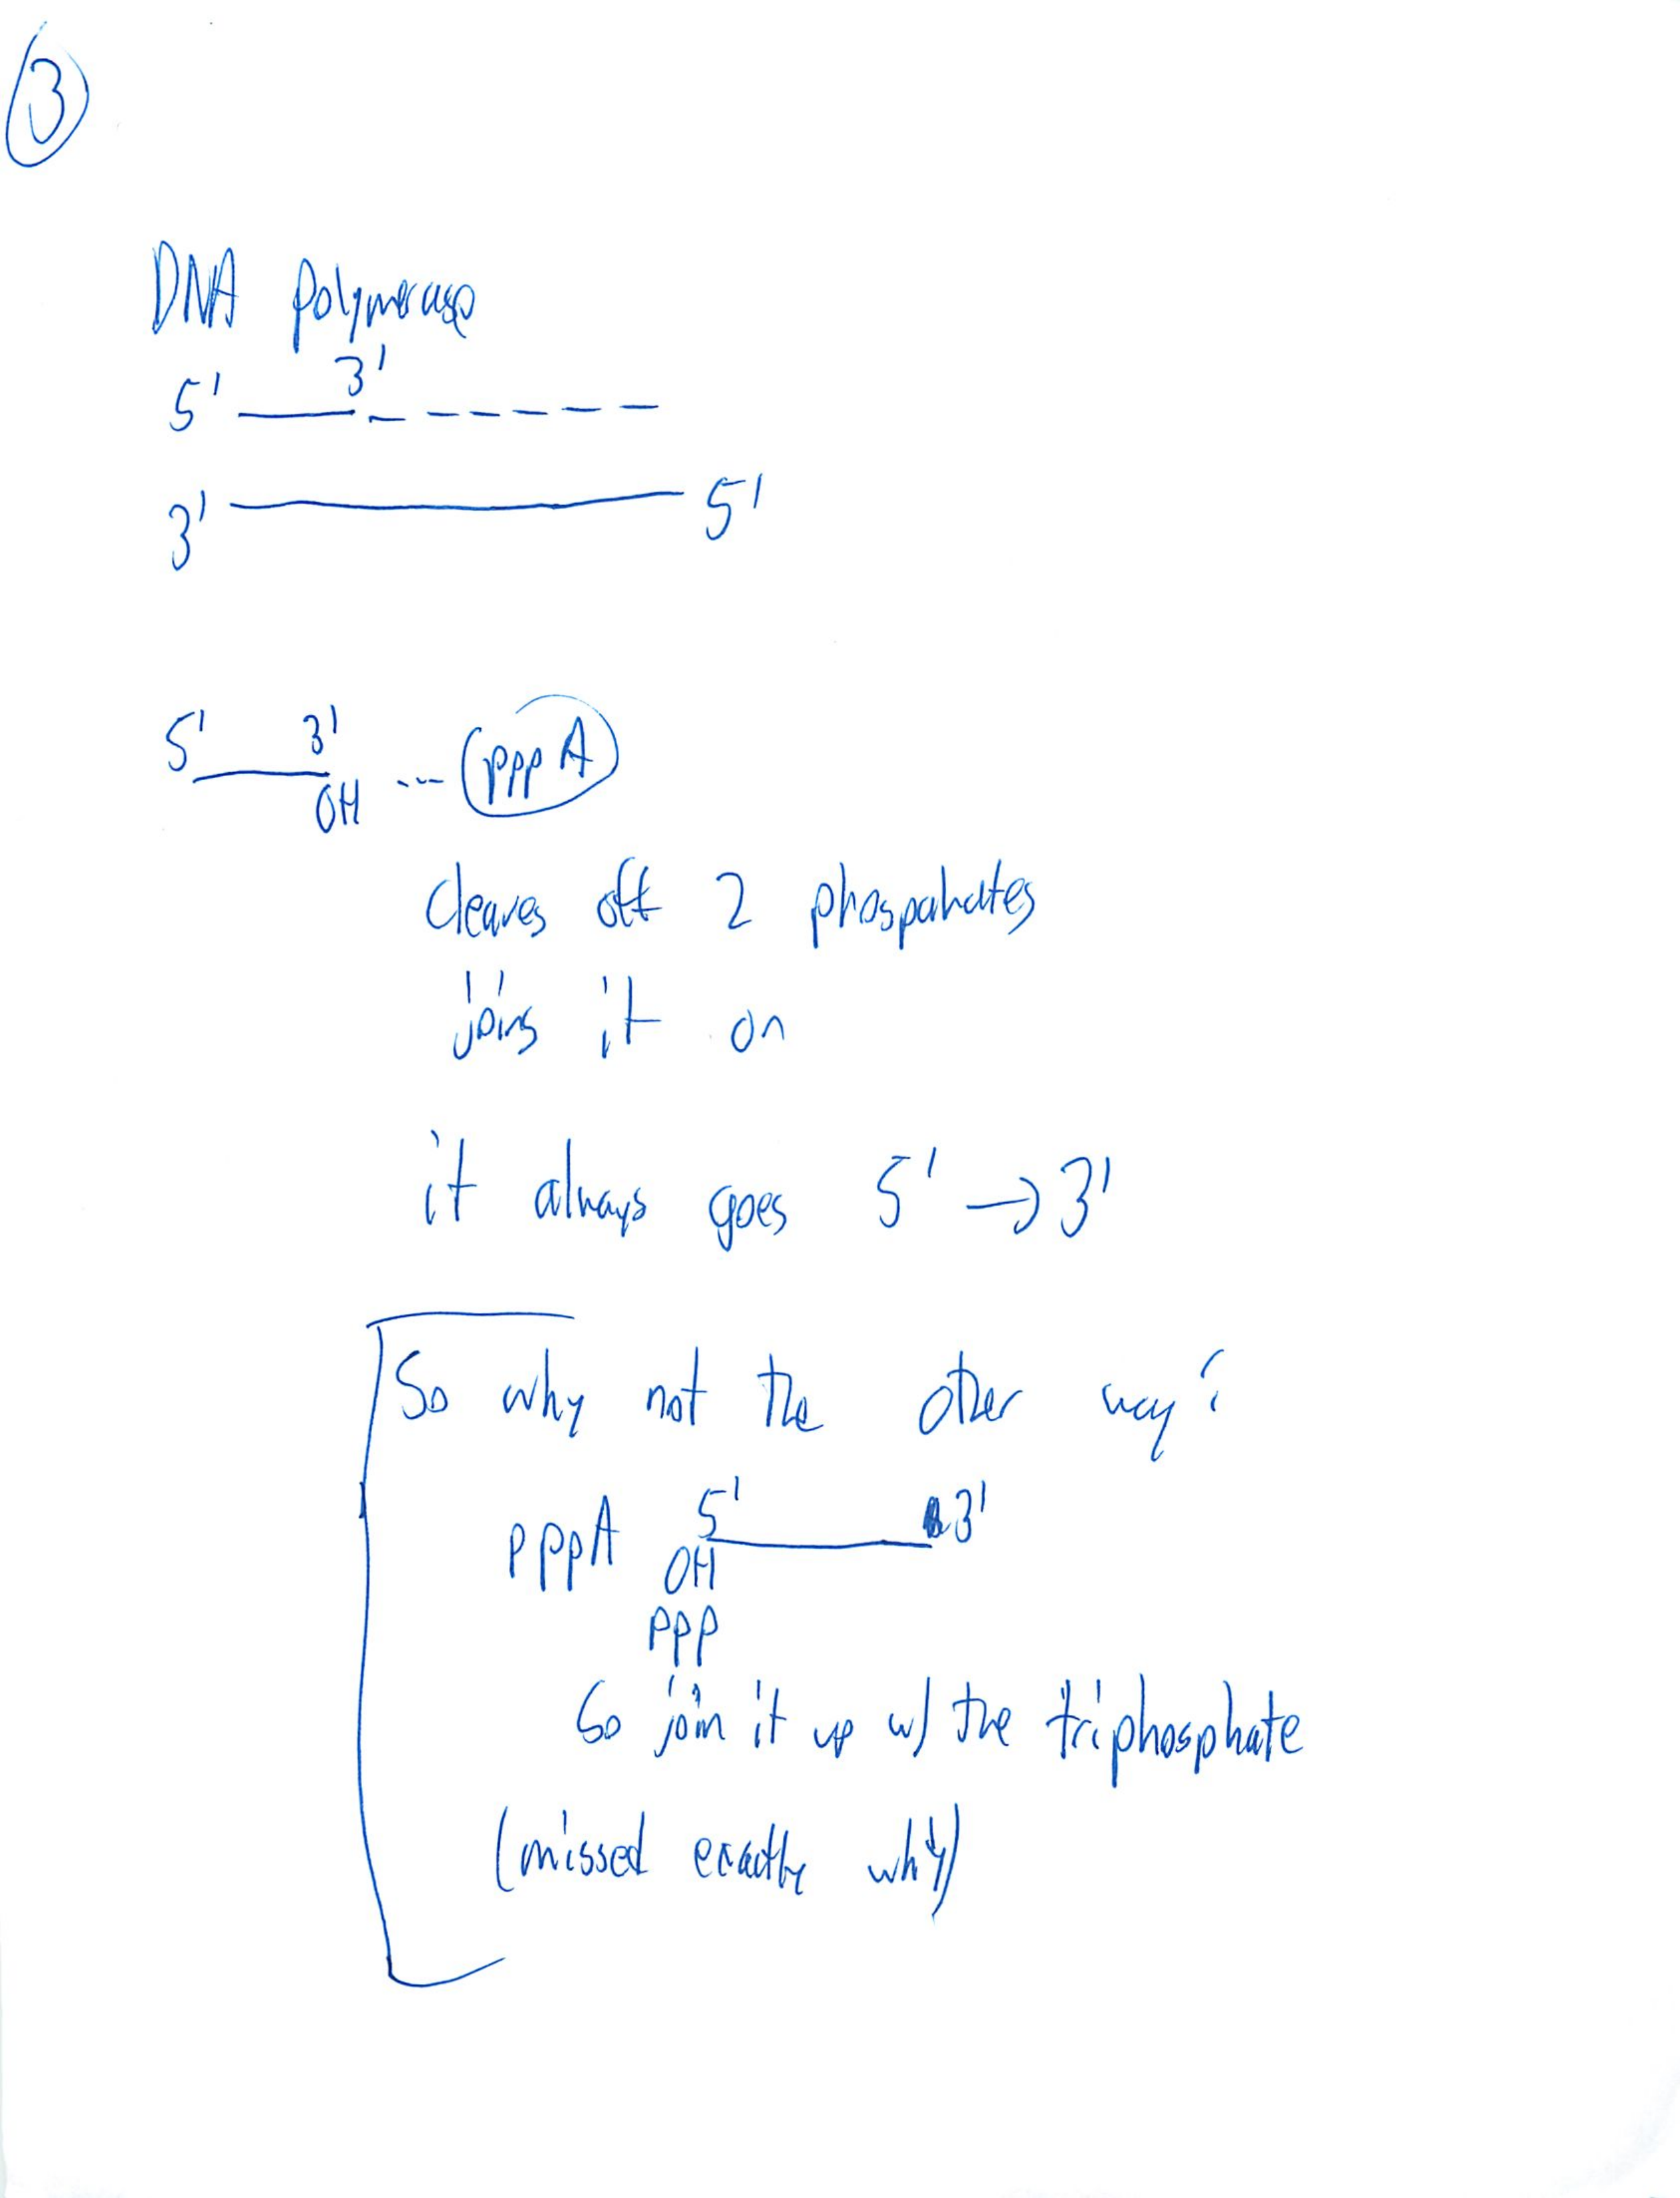 3
DNA polymerase
3'
5'
3' 5'
5' 3'
OH pppA
cleaves off 2 phospahates
joins it on
it always goes 5' → 3'
So why not the other way?
pppA 5' 3'
OH
ppp
So join it up w/ the triphosphate
(missed exactly why)